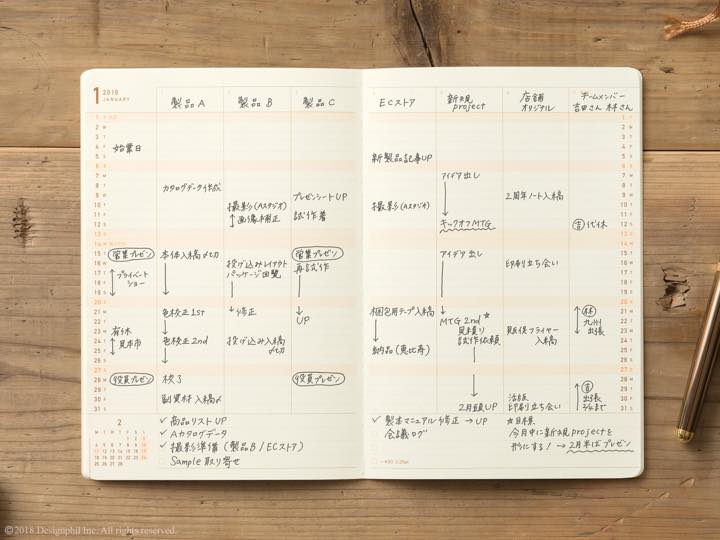 1 2018
JANUARY
製品A
製品B
製品C
始業日
カタログデータ作成
撮影(Aスタジオ)
画像補正
プレゼンシートUP
試作着
営業プレゼン
プライベート
ショー
本体入稿〆切
投げ込みレイアウト
パッケージ回覧
営業プレゼン
再試作
UP
色校正 1st
修正
有休
見本市
色校正 2nd
投げ込み入稿
〆切
役員プレゼン
校了
役員プレゼン
副資材入稿〆
2
✓ 商品リストUP
✓ Aカタログデータ
✓ 撮影準備(製品B/ECストア)
Sample取り寄せ
ECストア
新規
project
店舗
オリジナル
チームメンバー
吉田さん 林さん
新製品記事UP
アイデア出し
撮影(Aスタジオ)
2周年ノート入稿
キックオフMTG
吉 代休
アイデア出し
印刷り立ち会い
梱包用テープ入稿
MTG 2nd ☆
見積り
試作依頼
販促フライヤー
入稿
林
九州
出張
納品(恵比寿)
2月頭UP
活版
印刷り立ち会い
吉
出張
✓ 製本マニュアル修正 → UP
会議ログ
☆日本橋
今月中に新規projectを
形にする! → 2月半ばプレゼン
©2018 Designphil Inc. All rights reserved.